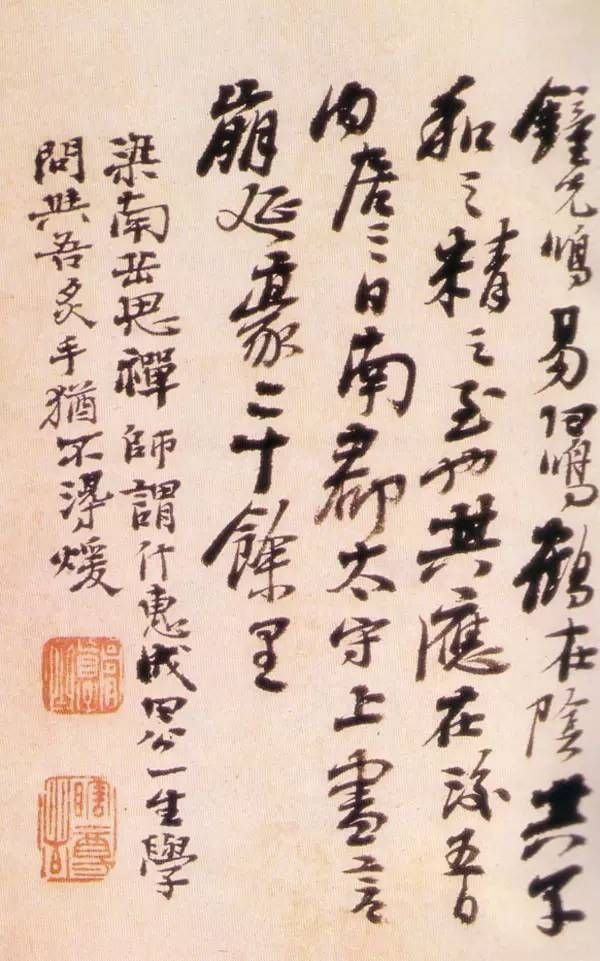 鐘先鳴易曰鳴鶴在陰其子
和之精之至也其應在後五日
內居三日南郡太守上書言
崩延袤二十餘里
梁南岳思禪師謂什惠成曰公一生學
問與吾炙手猶不得煖